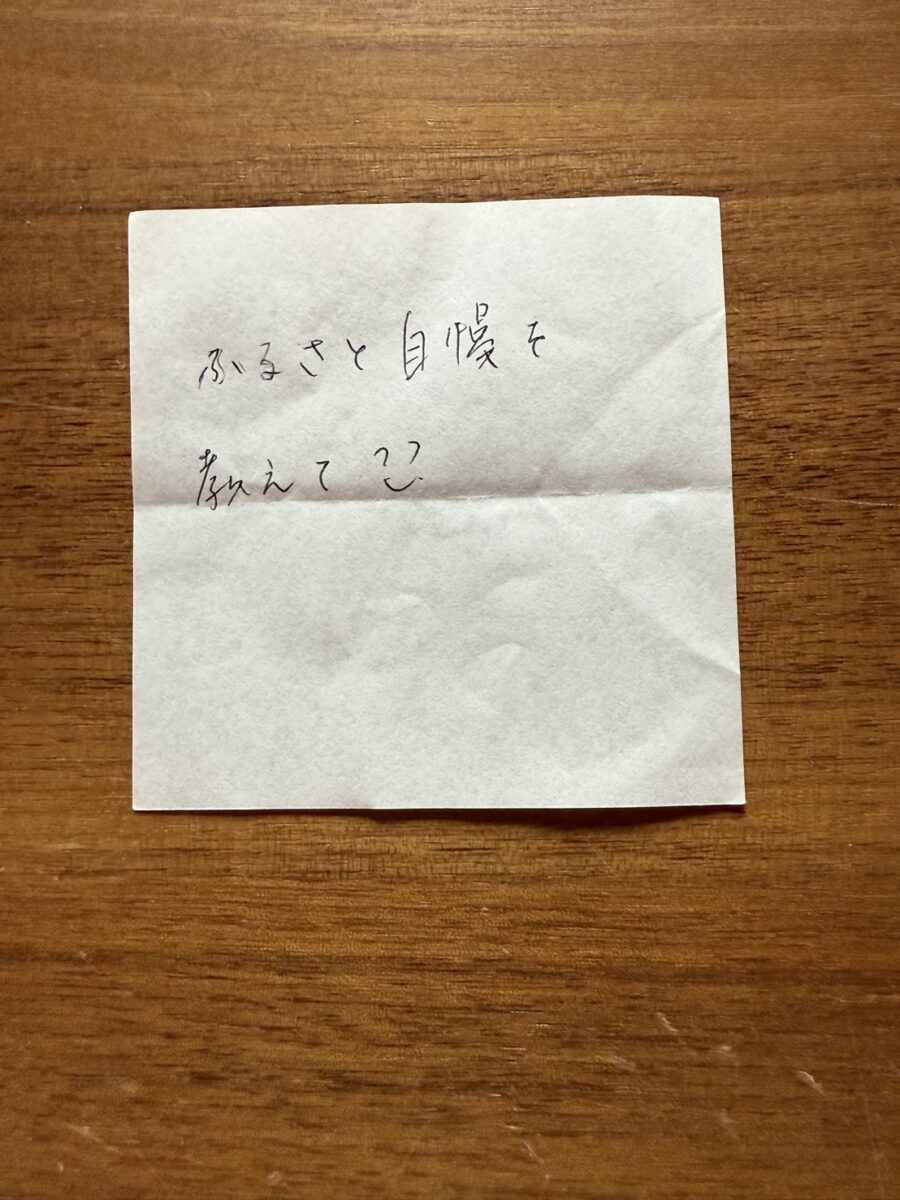 ふるさと自慢を
教えて